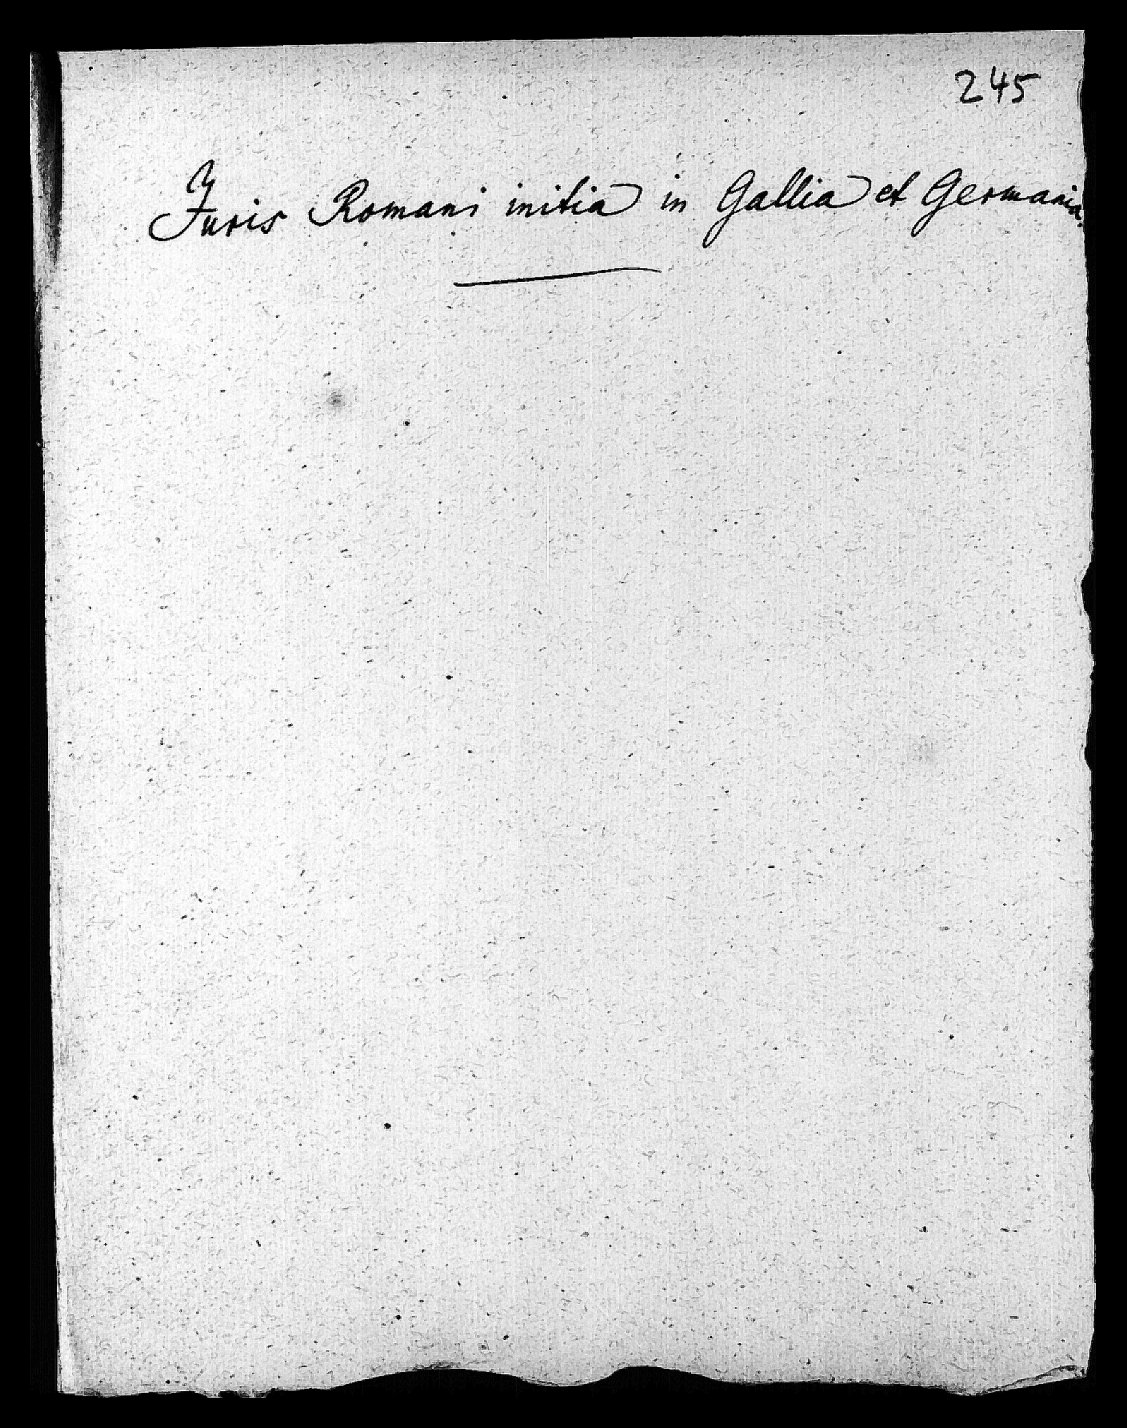 245
Juris Romani initia in Gallia et Germania.